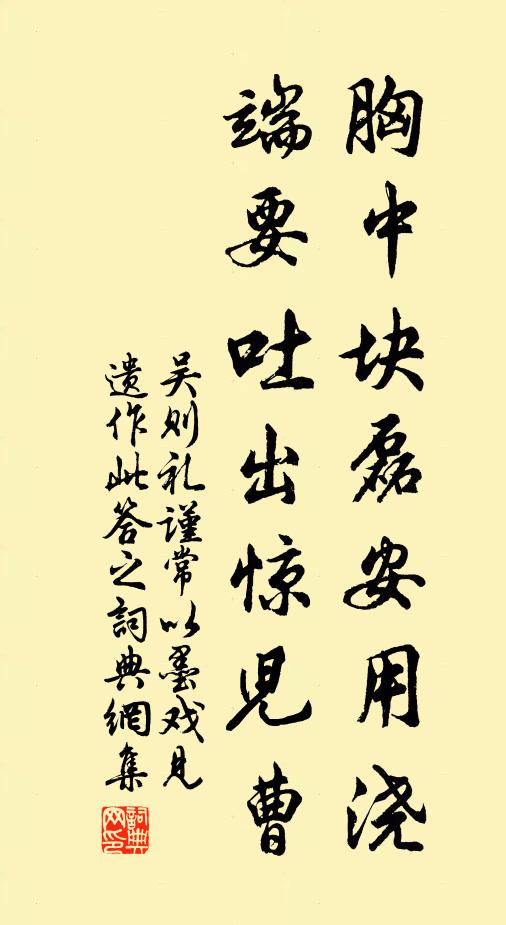 胸中块磊安用浇
端要吐出惊児曹
吴则礼谨常以墨戏见
遗作此答之詞典網集
詞典
网印